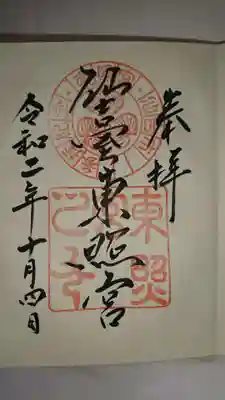 奉拝
仙臺東照宮
令和二年十月四日
東照